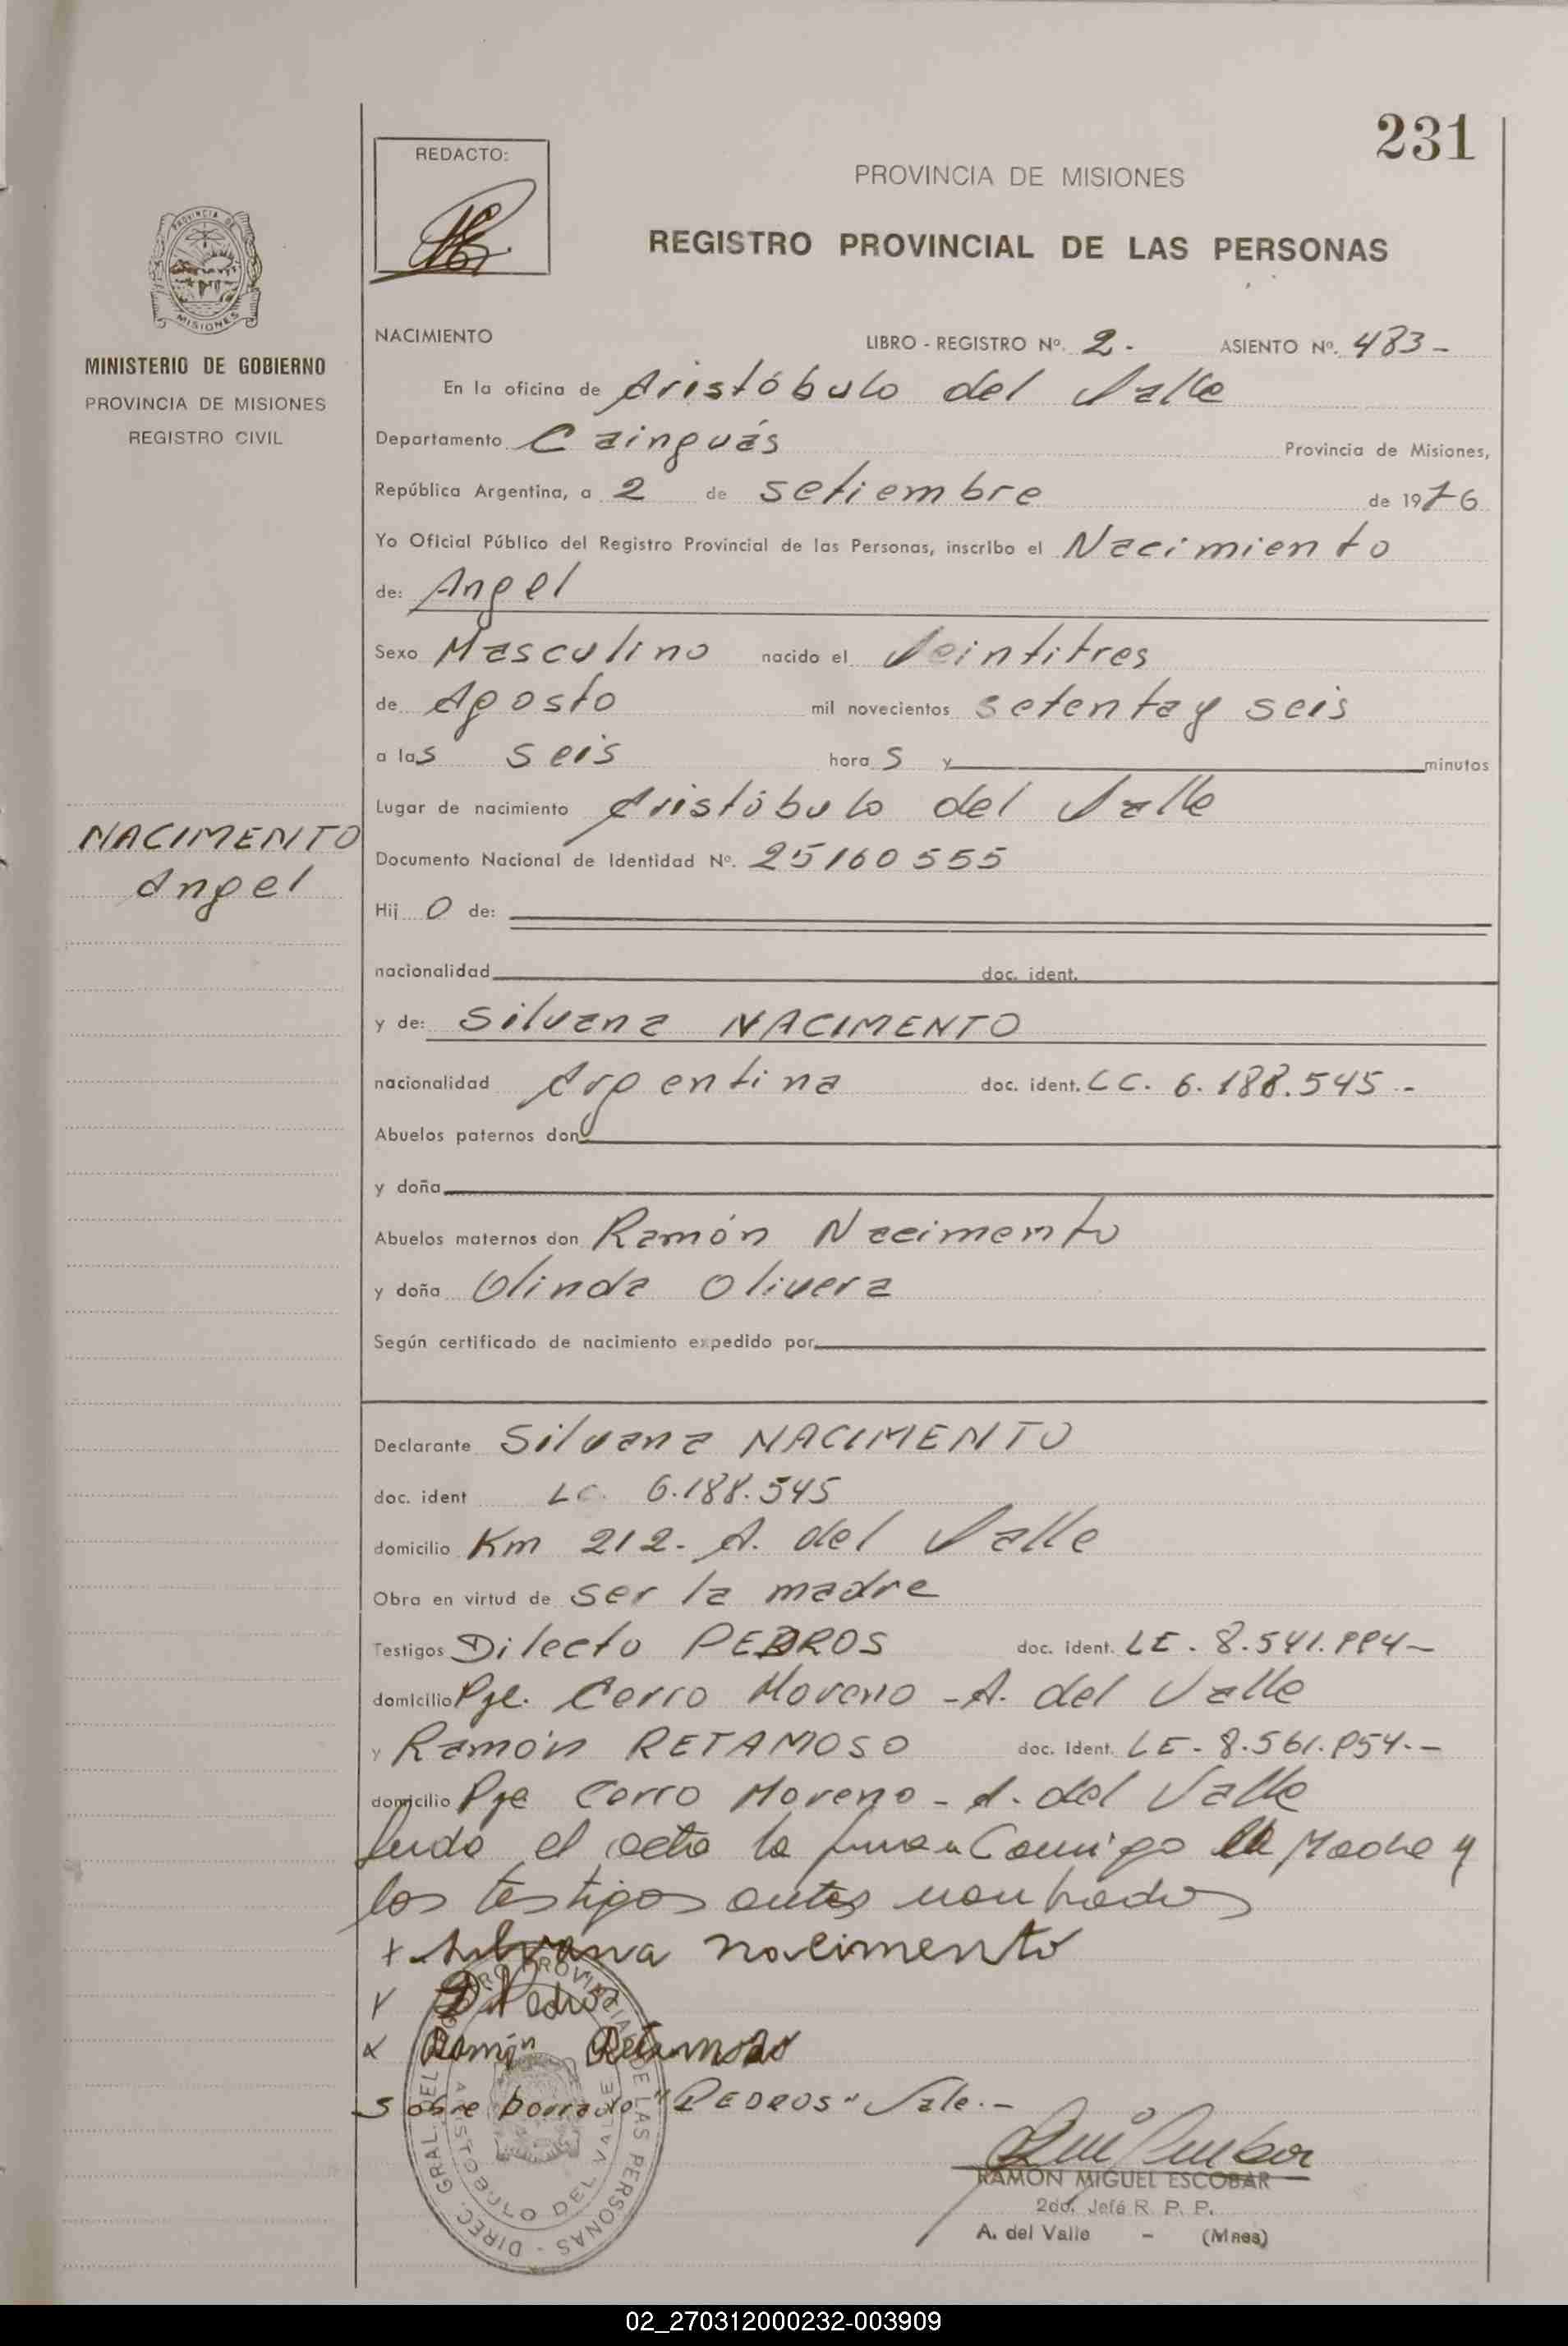 231
REDACTO:
PROVINCIA DE MISIONES
REGISTRO PROVINCIAL DE LAS PERSONAS
PROVINCIA DE
MISIONES
MINISTERIO DE GOBIERNO
PROVINCIA DE MISIONES
REGISTRO CIVIL
NACIMIENTO LIBRO - REGISTRO Nº. 2.- ASIENTO Nº. 483-
En la oficina de Aristóbulo del Valle
Departamento Cainguás Provincia de Misiones,
República Argentina, a 2 de setiembre de 1976
Yo Oficial Público del Registro Provincial de las Personas, inscribo el Nacimiento
de: Angel
Sexo Masculino nacido el Veintitres
de Agosto mil novecientos setenta y seis
a las seis horas y minutos
Lugar de nacimiento Aristóbulo del Valle
NACIMENTO
Angel
Documento Nacional de Identidad Nº. 25160555
Hijo de:
nacionalidad doc. ident.
y de: Silvana NACIMENTO
nacionalidad Argentina doc. ident. LC. 6.188.545.-
Abuelos paternos don
y doña
Abuelos maternos don Ramón Nacimento
y doña Olinda Olivera
Según certificado de nacimiento expedido por
Declarante Silvana NACIMENTO
doc. ident LC. 6.188.545
domicilio Km 212- A. del Valle
Obra en virtud de ser la madre
Testigos Dilecto PEDROS doc. ident. LE. 8.541.994-
domicilio Pje. Cerro Moreno - A. del Valle
y Ramón RETAMOSO doc. Ident. LE- 8.561.954.-
domicilio Pje Cerro Moreno - A. del Valle
Leida el acta la firman Conmigo la Madre y
los testigos antes nombrados
+ Silvana nacimento
D Pedros
Ramón Retamoso
Sobre borrado "PEDROS" Vale.-
DIREC. GRAL. DEL REGISTRO PROVINCIAL DE LAS PERSONAS
ARISTOBULO DEL VALLE
RAMON MIGUEL ESCOBAR
2do. Jefe R. P. P.
A. del Valle - (Mnes)
02_270312000232-003909